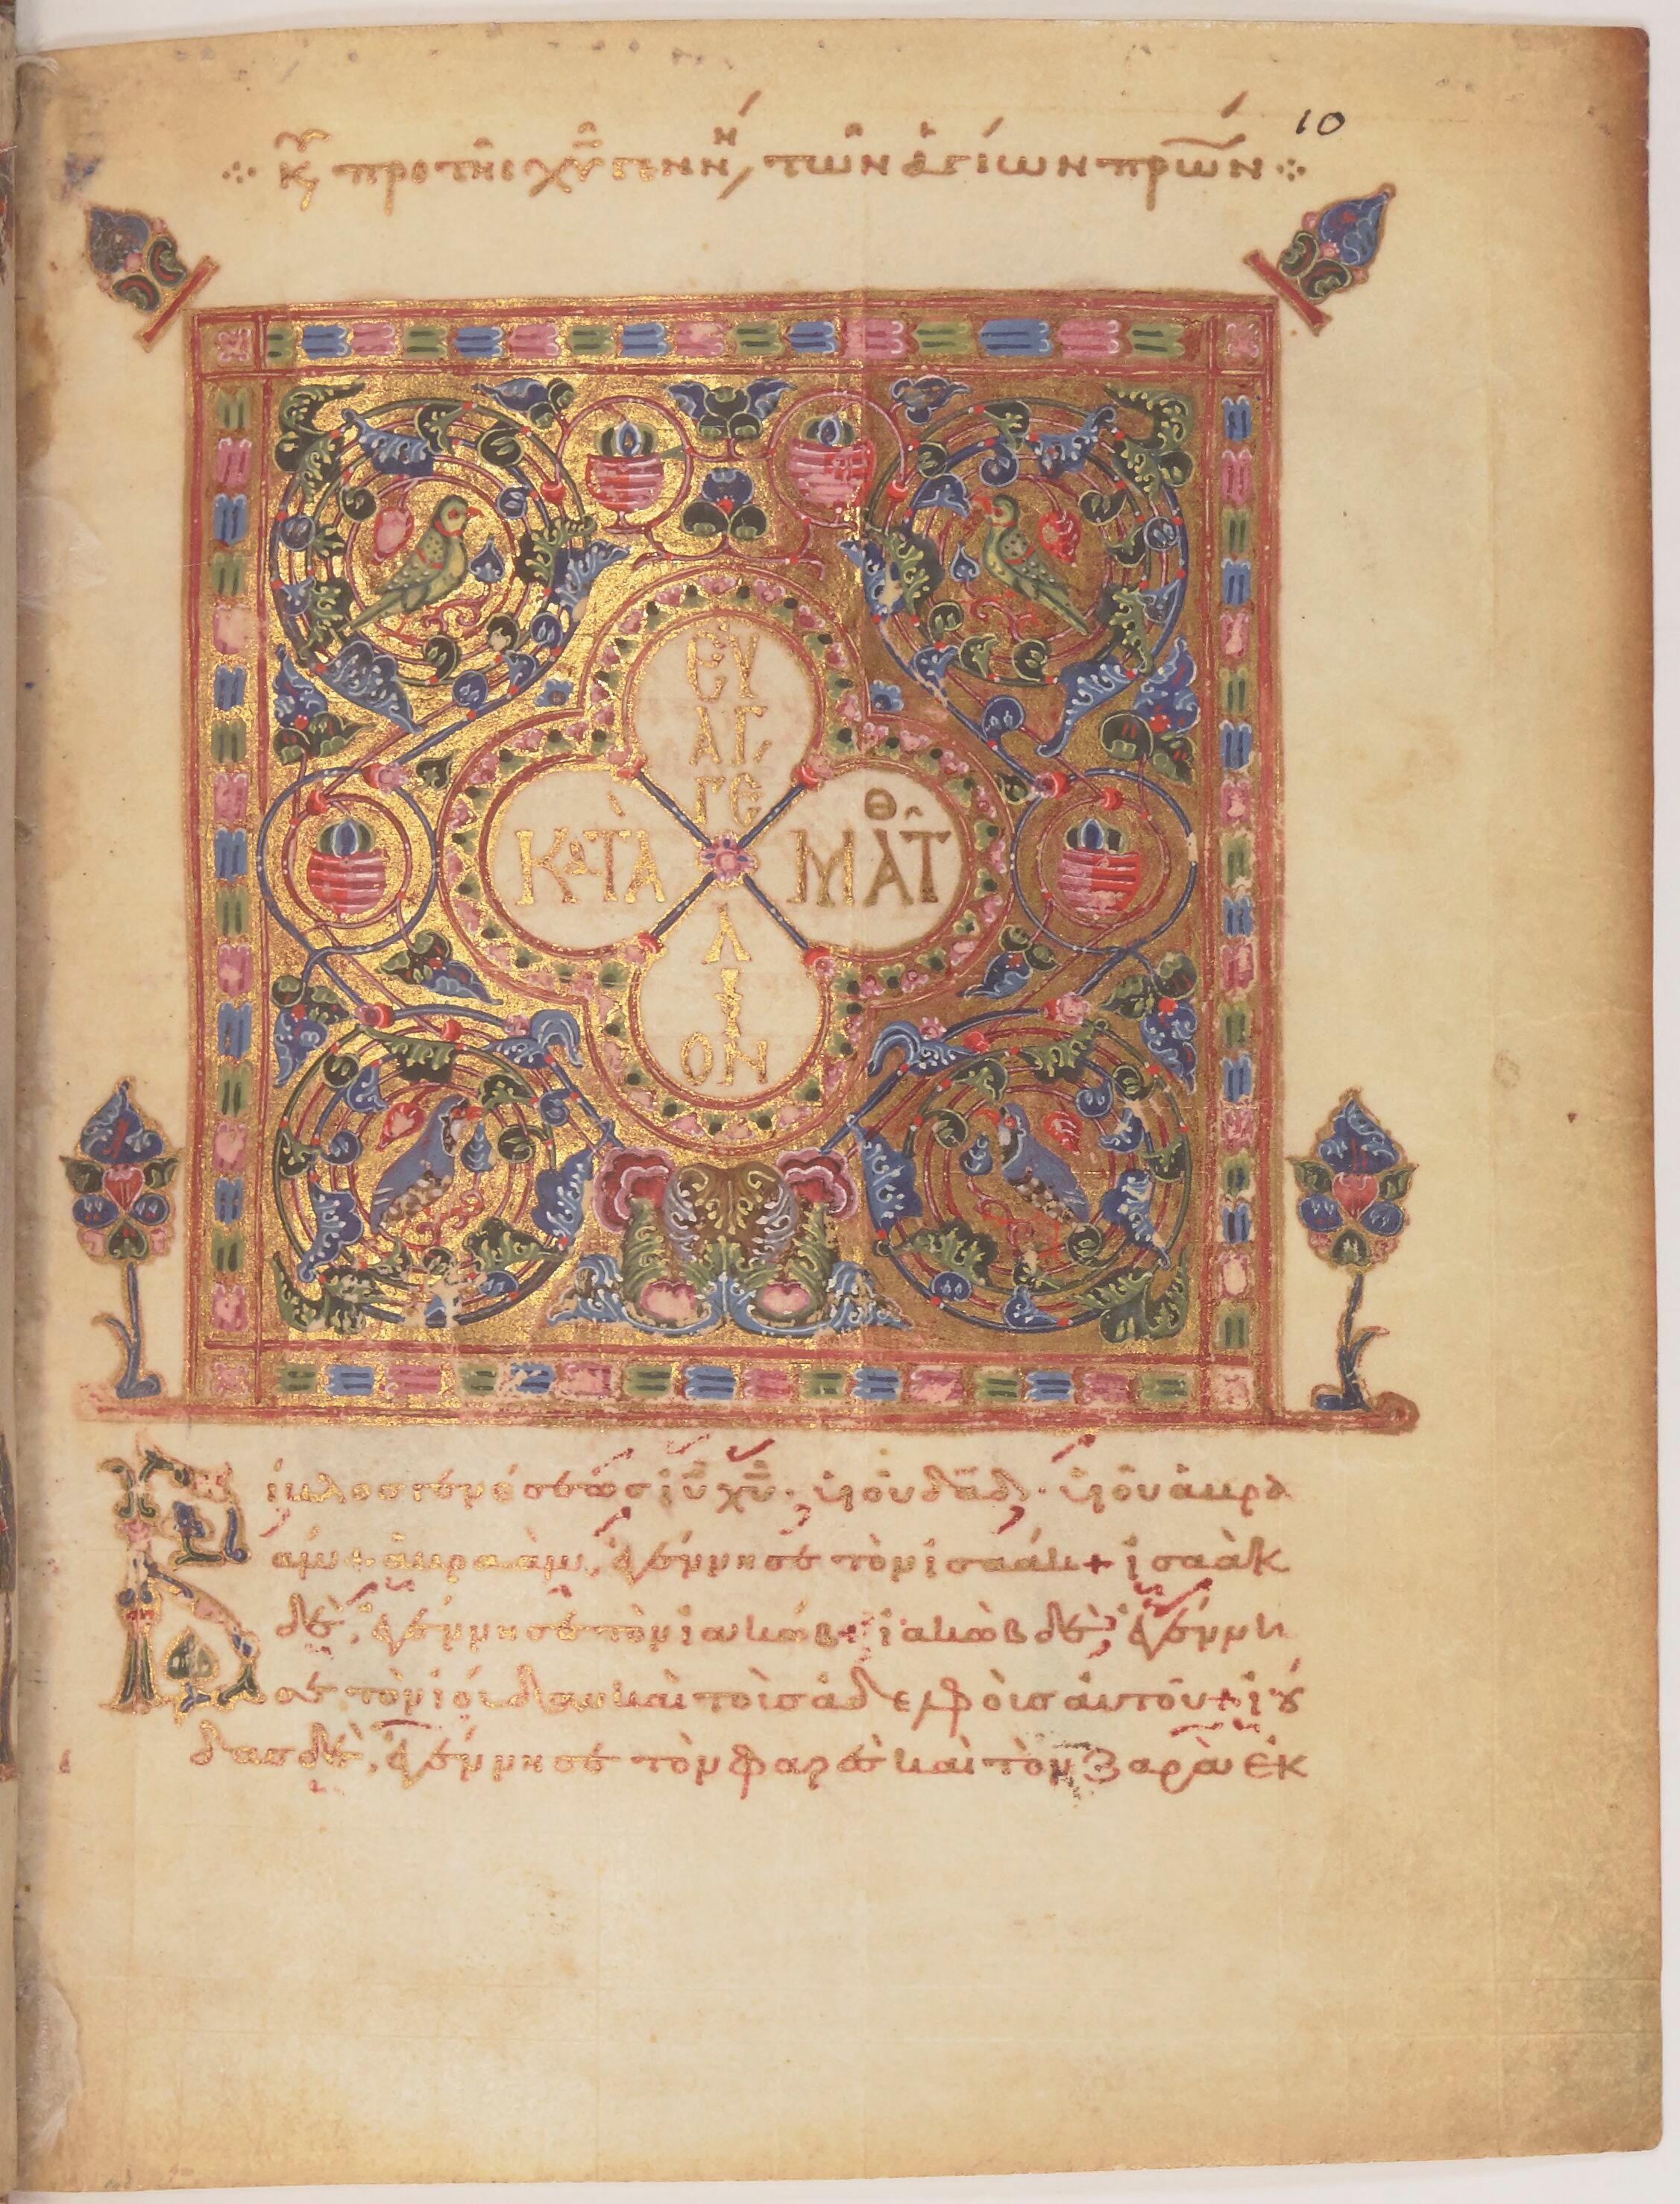 Κυ προ της χυ γενν, των αγίων πρων
10
ΕΥ
ΑΓ
ΓΕ
ΚΑΤᾺ ΜΑΤΘ
Λ
Ι
ΟΝ
Βίβλος γενέσεως ἰῦ χῦ· ὑιοῦ δᾱδ· ὑιοῦ ἀβρα
αμ+ ἀβρααμ, ἐγέννησε τὸν ἰσαάκ+ ἰσαὰκ
δὲ, ἐγέννησε τὸν ἰακώβ+ ἰακὼβ δὲ, ἐγέννη
σε τὸν ἰούδαν καὶ τοὺς ἀδελφοὺς ἀυτοῦ+ ἰού
δας δὲ, ἐγέννησε τὸν φαρὲς καὶ τὸν ζαρὰ ἐκ